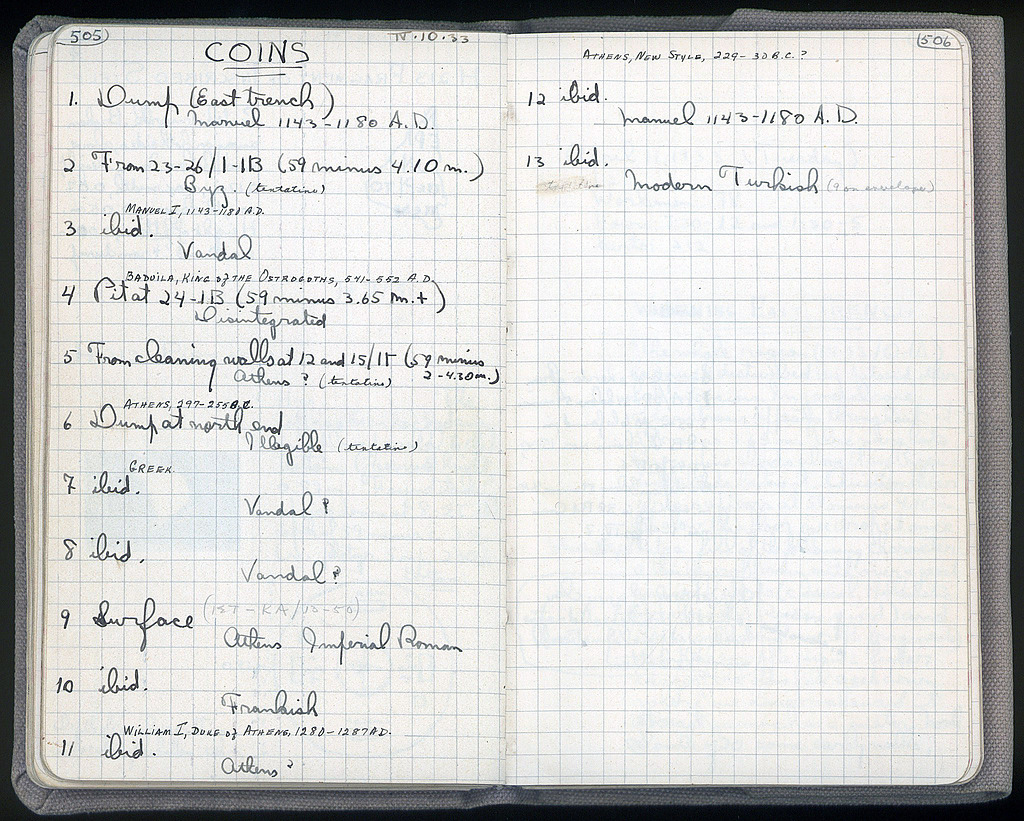 505
IV.10.33
COINS
1. Dump (East trench)
Manuel 1143-1180 A.D.
2 From 23-26/1-1B (59 minus 4.10 m.)
Byz. (tentative)
MANUEL I, 1143-1180 A.D.
3 ibid.
Vandal
BADUILA, KING OF THE OSTROGOTHS, 541-552 A.D.
4 Pit at 24-1B (59 minus 3.65 m.+)
Disintegrated
5 From cleaning walls at 12 and 15/ (59 minus
Athens ? (tentative) 2-4.30m.)
ATHENS, 297-255 B.C.
6 Dump at north end
Illegible (tentative)
GREEK.
7 ibid.
Vandal ?
8 ibid.
Vandal ?
9 Surface
Athens Imperial Roman
10 ibid.
Frankish
WILLIAM I, DUKE OF ATHENS, 1280-1287 A.D.
11 ibid.
Athens ?
506
ATHENS, NEW STYLE, 229-30 B.C. ?
12 ibid.
Manuel 1143-1180 A.D.
13 ibid.
Modern Turkish (9 on envelope)